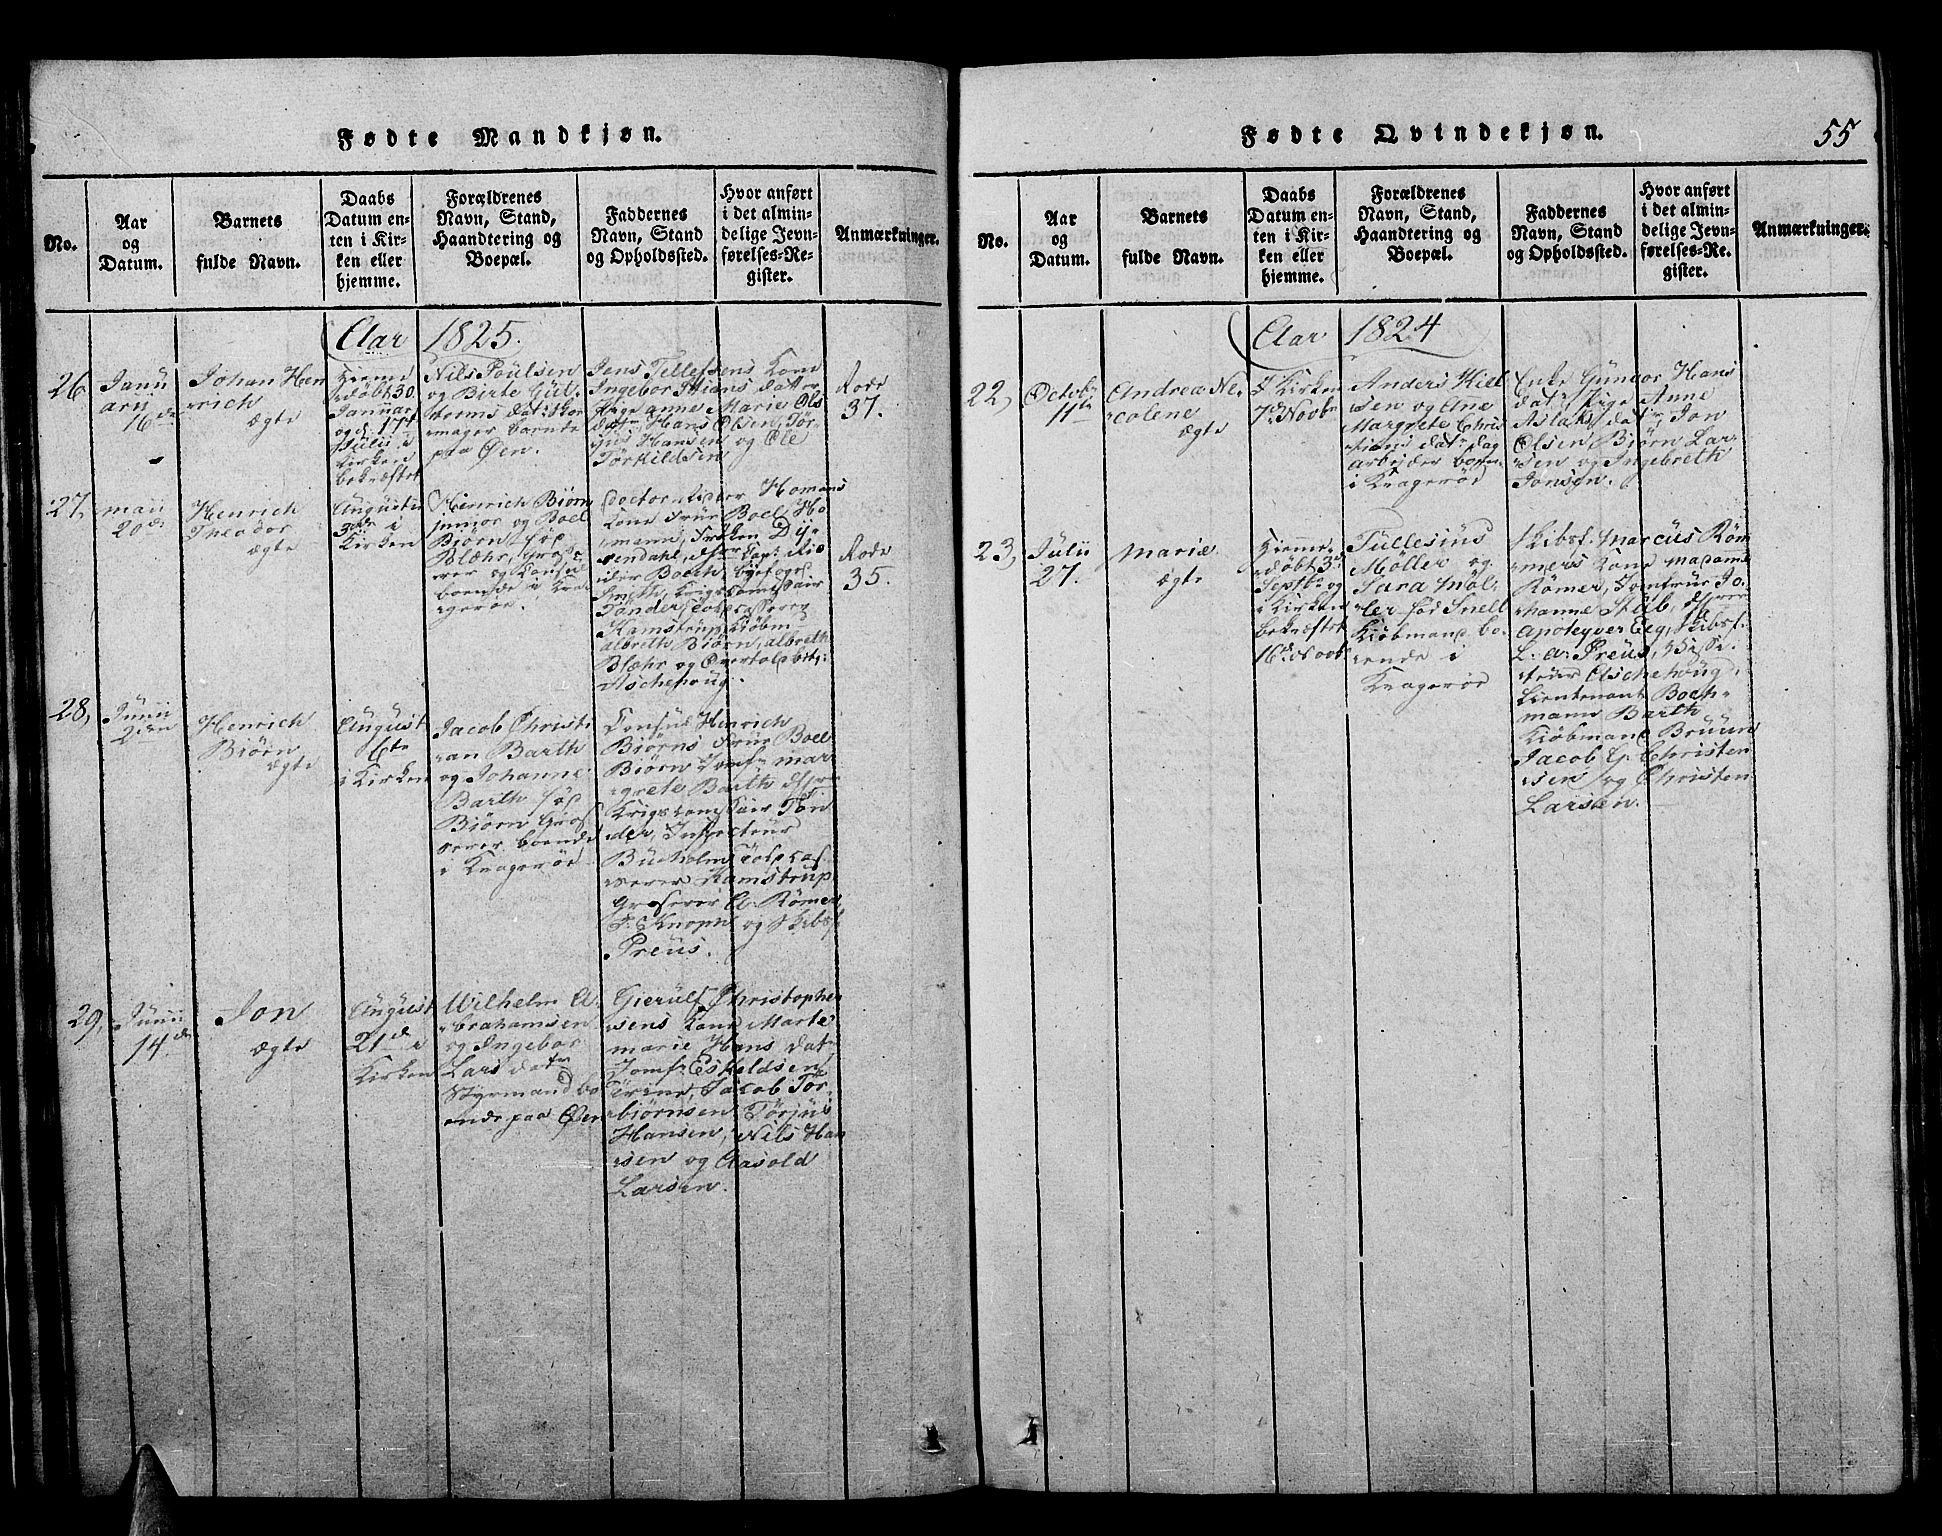 Fødte Mandkjøn.
No.
Aar
og
Datum.
Barnets
fulde Navn.
Daabs
Datum en-
ten i Kir-
ken eller
hjemme.
Forældrenes
Navn, Stand,
Haandtering og
Boepæl.
Faddernes
Navn, Stand
og Opholdssted.
Hvor anført
i det almin-
delige Jevn-
førelses-Re-
gister.
Anmærkninger.
Aar 1825.
26
Janu
arii
16de
Johan Hen
rich
ægte
Hiemme
døbt 30
Januar
og d. 17de
Julii i
Kirken
bekræftet
Nils Poulsen
og Birte Gul-
derms datr Skoe
mager boende
paa Øen.
Jens Tellefsens Kone
Ingebor Stians datter
Pige anne Marie Ols
datr, Hans Olsen, Tør-
jus Hansen og Ole
Tørkildsen
Rode
37.
27,
maii
20de
Henrich
Theodor
ægte
Augusti
3die i
Kirken
Henrich Biørn
junior og Boel
Biørn fød
Blæhr, Gros-
serer og Consul
boende i Kra
gerøe.
Doctor Homans
Kone Frue Boel Ho
mann, Frøken Dy-
rendahl, Capt. Rie
ider Boeth, byefoged
Smith, Krigscomissair
Tønder, Toldcasserer
Kamstrup, Kiøbm
albreth Biørn, albreth
Blæhr og Overtoldbet:
Aschehoug.
Rode
35.
28,
Junii
2den
Henrich
Biørn
ægte
August
6te
i Kirken
Jacob Christi
an Barth
og Johanne
Barth fød
Biørn Gros
serer boende
i Kragerøe
Consul Henrich
Biørns Frue Boel
Biørn Jomfr mar-
grete Barth
Krigscomissair Tøn
der, Inspecteur
Bucholm Toldcas-
serer Kamstrup
Grosserer A. Rømer,
Knoph og Skibsf.
Preus.
29,
Junii
14de
Jon
ægte
August
21de i
Kirken
Wilhelm A-
brahamsen
og Ingebor
Lars datr
Styrmand bo
ende paa Øen
Gierulf Christophe
rsens Kone Marte
marie Hans dat
Jomfr Eskeldsen
Jacob Tør-
biørnsen, Tørjus
Hansen, Nils Han
sen og Aasold
Larsen.
Fødte Qvindekjøn.
55
No.
Aar
og
Datum.
Barnets
fulde Navn.
Daabs
Datum en-
ten i Kir-
ken eller
hjemme.
Forældrenes
Navn, Stand,
Haandtering og
Boepæl.
Faddernes
Navn, Stand
og Opholdssted.
Hvor anført
i det almin-
delige Jevn-
førelses-Re-
gister.
Anmærkninger.
Aar 1824
22,
Octobr
11te
Andrea Ne-
colene
ægte
I Kirken
7de Novbr
Anders Kiel
sen og Ane
Margrete Chris
tians datr Dag
arbeider boen
i Kragerøe
Enke Gunnor Hans
datr Pige Anne
Aslaks datr, Jon
Olsen Biørn Lar-
sen og Ingebreth
Jonsen.
23,
Julii
27.
Marie
ægte
Hiemme
døbt 3de
Septbr og
i Kirken
bekræftet
16de Novbr
Tullesius
Møller og
Sara Møl-
ler fød Snell
Kiøbmand bo-
ende i
Kragerøe
Skibsf. Marcus Røm
mers Kone madame
Rømer, Jomfrue Jo-
hanne Stub,
Apoteqver Eeg, Skibsf.
L. A. Preus,
Aschehoug,
Lieutenant Boch-
mann Barth
Kiøbmand Bruun
Jacob G. Christen
sen og Christen
Larsen.